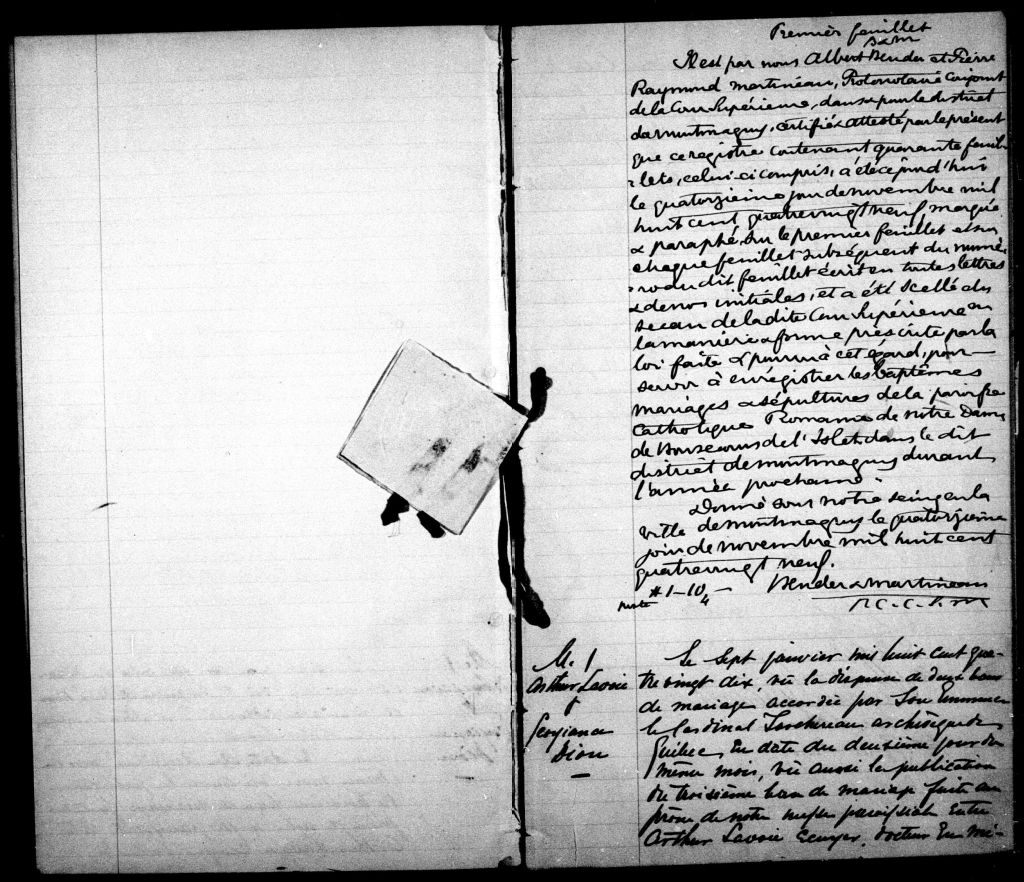 Premier feuillet
B & M
Il est par nous Albert Bender et Pierre
Raymond Martineau, Protonotaire Conjoint
de la Cour Supérieure, dans & pour le district
de Montmagny, certifié & attesté par le présent
que ce registre contenant quarante feuil-
lets, celui-ci compris, a été ce jourd'hui
le quatorzième jour de novembre mil
huit cent quatrevingt neuf, marqué
& paraphé sur le premier feuillet et sur
chaque feuillet subséquent du numé-
ro du dit feuillet écrit en toutes lettres
& de nos initiales, et a été scellé du
sceau de la dite Cour Supérieure en
la manière & forme prescrite par la
loi faite & pourvu à cet égard, pour
servir à enrégistrer les baptêmes
mariages & sépultures de la paroisse
Catholique Romaine de Notre Dame
de Bonsecours de l'Islet dans le dit
district de Montmagny durant
l'année prochaine.
Donné sous notre seing en la
ville de Montmagny le quatorzième
jour de novembre mil huit cent
quatrevingt neuf.
Bender & Martineau
P.C.C.S.M
M. 1
Arthur Lavoie
&
Georgiana
Dion
Le sept janvier mil huit cent qua-
tre vingt dix, vû la dispense de deux bans
de mariage accordée par Son Eminence
le Cardinal Taschereau archevêque de
Québec en date du deuxième jour du
même mois, vû aussi la publication
du troisième ban de mariage faite au
prône de notre messe paroissiale entre
Arthur Lavoie Ecuyer, docteur en mé-